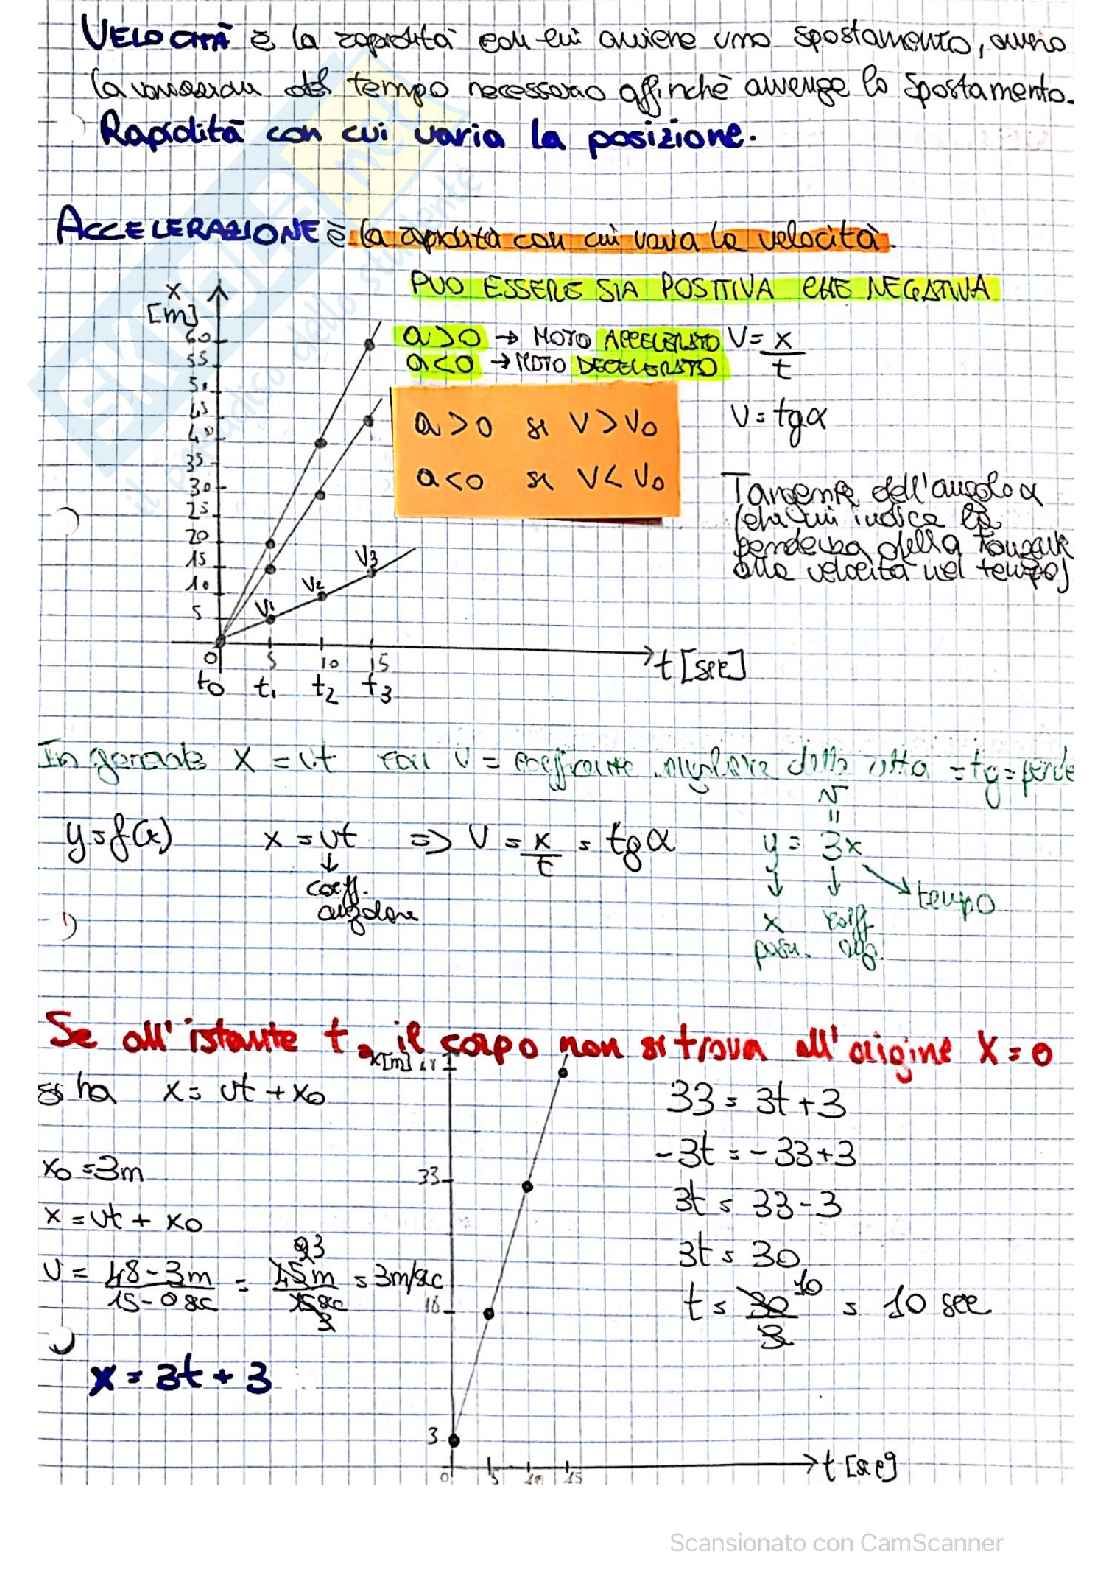 VELOCITÀ è la rapidità con cui avviene uno spostamento, ovvero
la variazione del tempo necessario affinché avvenga lo spostamento.
Rapidità con cui varia la posizione.
ACCELERAZIONE è la rapidità con cui varia la velocità.
PUÒ ESSERE SIA POSITIVA CHE NEGATIVA
x
[m]
60
55
50
45
40
35
30
25
20
15
10
5
0
5
10
15
t0
t1
t2
t3
t [sec]
V1
V2
V3
a>0 → MOTO ACCELERATO
a<0 → MOTO DECELERATO
V = x/t
a>0 se V>V0
a<0 se V<V0
V = tgα
Tangente dell'angolo α
(che mi indica la
pendenza della
alla velocità nel tempo)
In generale x = vt con v = coefficiente angolare della retta = tg =
y=f(x)
x = vt ⇒ V = x/t = tgα
↓
coeff.
angolare
v
=
y = 3x
↓ ↓ tempo
x coeff
posiz. ang.
Se all'istante t0 il corpo non si trova all'origine x=0
si ha x = vt + x0
x0 = 3m
x = vt + x0
V = 48-3m/15-0sec = 45m/15sec = 3m/sec
x = 3t + 3
x[m]
33
18
3
0
5
10
15
t [sec]
33 = 3t + 3
-3t = -33+3
3t = 33-3
3t = 30
t = 30/3 10 = 10 sec
Scansionato con CamScanner